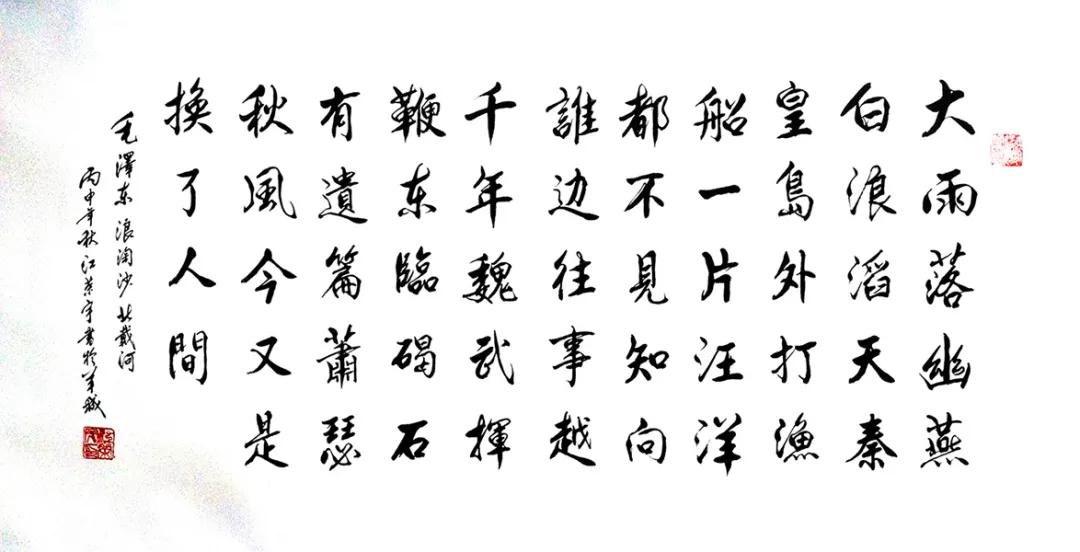 大雨落幽燕
白浪滔天秦
皇島外打漁
船一片汪洋
都不見知向
誰边往事越
千年魏武揮
鞭东臨碣石
有遺篇蕭瑟
秋風今又是
換了人間
毛澤东浪淘沙北戴河
丙申年秋江景宇書於羊城